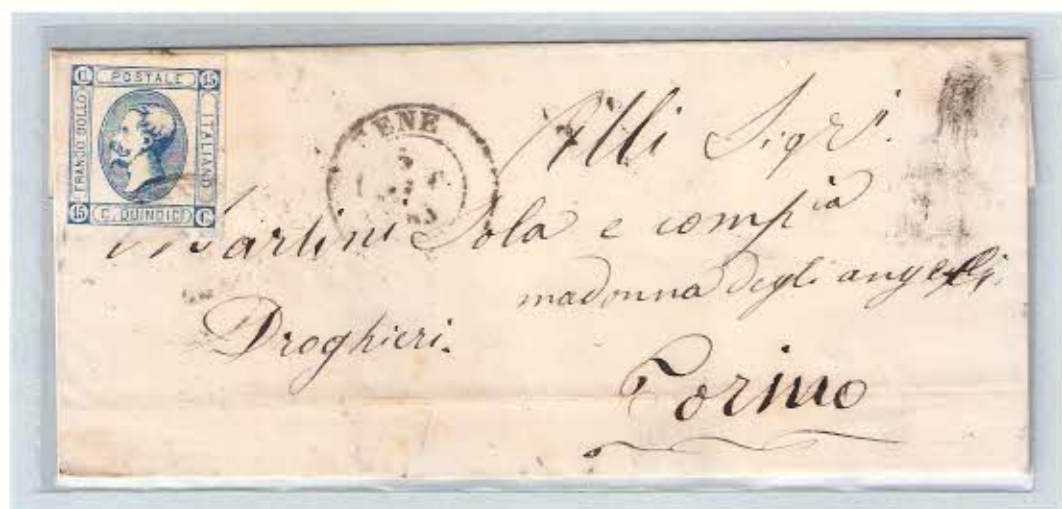 C. POSTALE 15
FRANCO BOLLO
ITALIANO
15 C. QUINDICI C
BENE
Alli Sigri.
Martini Sola e compia
madonna degli angeli
Droghieri.
Torino